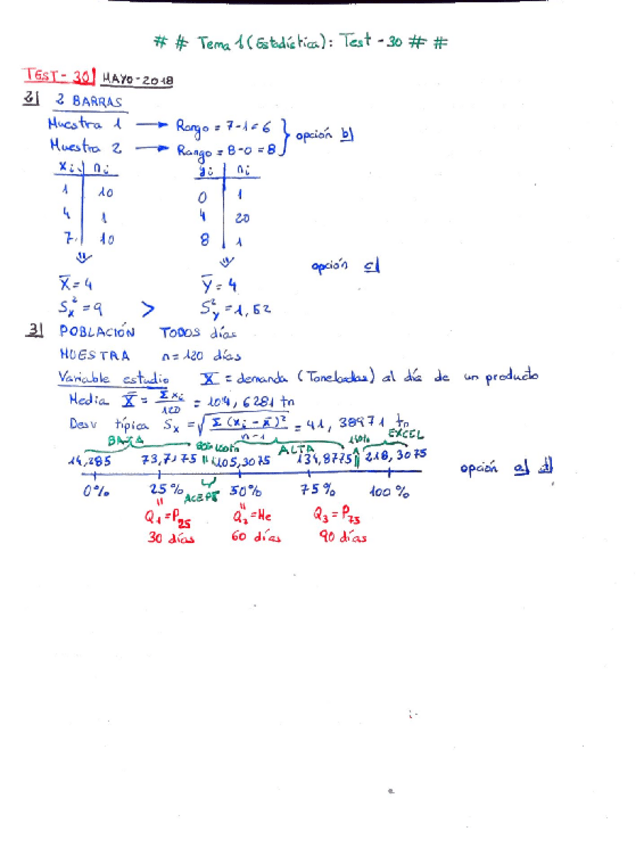 # # Tema 1 (Estadística): Test - 30 # #
TEST - 30| MAYO - 2018
2| 2 BARRAS
Muestra 1 → Rango = 7-1 = 6
Muestra 2 → Rango = 8-0 = 8
opción b)
xi ni yi ni
1 10 0 1
4 1 4 20
7 10 8 1
opción c)
X̄ = 4 Ȳ = 4
Sx² = 9 > Sy² = 1,52
3| POBLACIÓN TODOS días
MUESTRA n = 120 días
Variable estudio X = demanda (Toneladas) al día de un producto
Media X̄ = Σxi / 120 = 104,6281 tn
Desv típica Sx = √(Σ(xi - x̄)² / n-1) = 41,38971 tn
BAJA ALTA EXCEL
14,285 73,7175 105,3075 134,8775 218,3075
opción a) d)
0% 25% 50% 75% 100%
ACEPT
Q1 = P25 Q2 = Me Q3 = P75
30 días 60 días 90 días